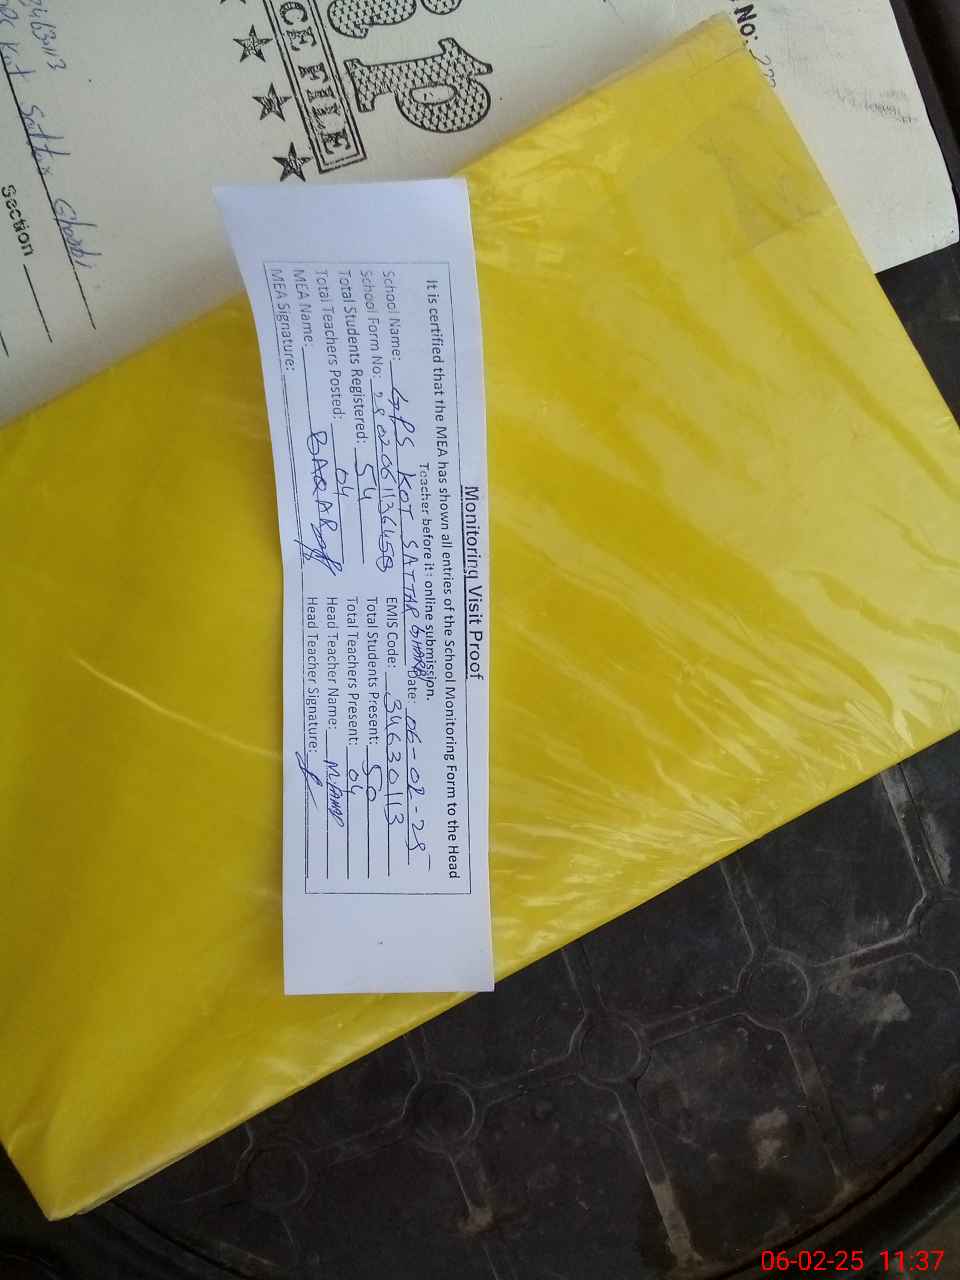 Monitoring Visit Proof
It is certified that the MEA has shown all entries of the School Monitoring Form to the Head
Teacher before its online submission.
School Name: GPS KOT SATTAR GHARBI Date: 06-02-25
School Form No: EMIS Code: 34630113
Total Students Registered: 54 Total Students Present: 50
Total Teachers Posted: 04 Total Teachers Present: 04
MEA Name: BAQAR Head Teacher Name:
MEA Signature: Head Teacher Signature:
CE FILE
No:
34630113
Kot Sattar Gharbi
Section
06-02-25 11:37